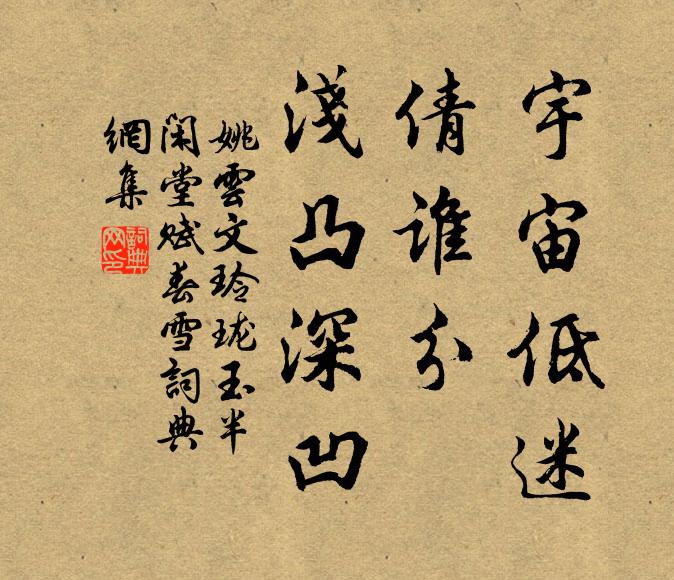 宇宙低迷
倩誰分
淺凸深凹
姚雲文玲瓏玉半
閑堂賦春雪詞典
網集
詞典
网印